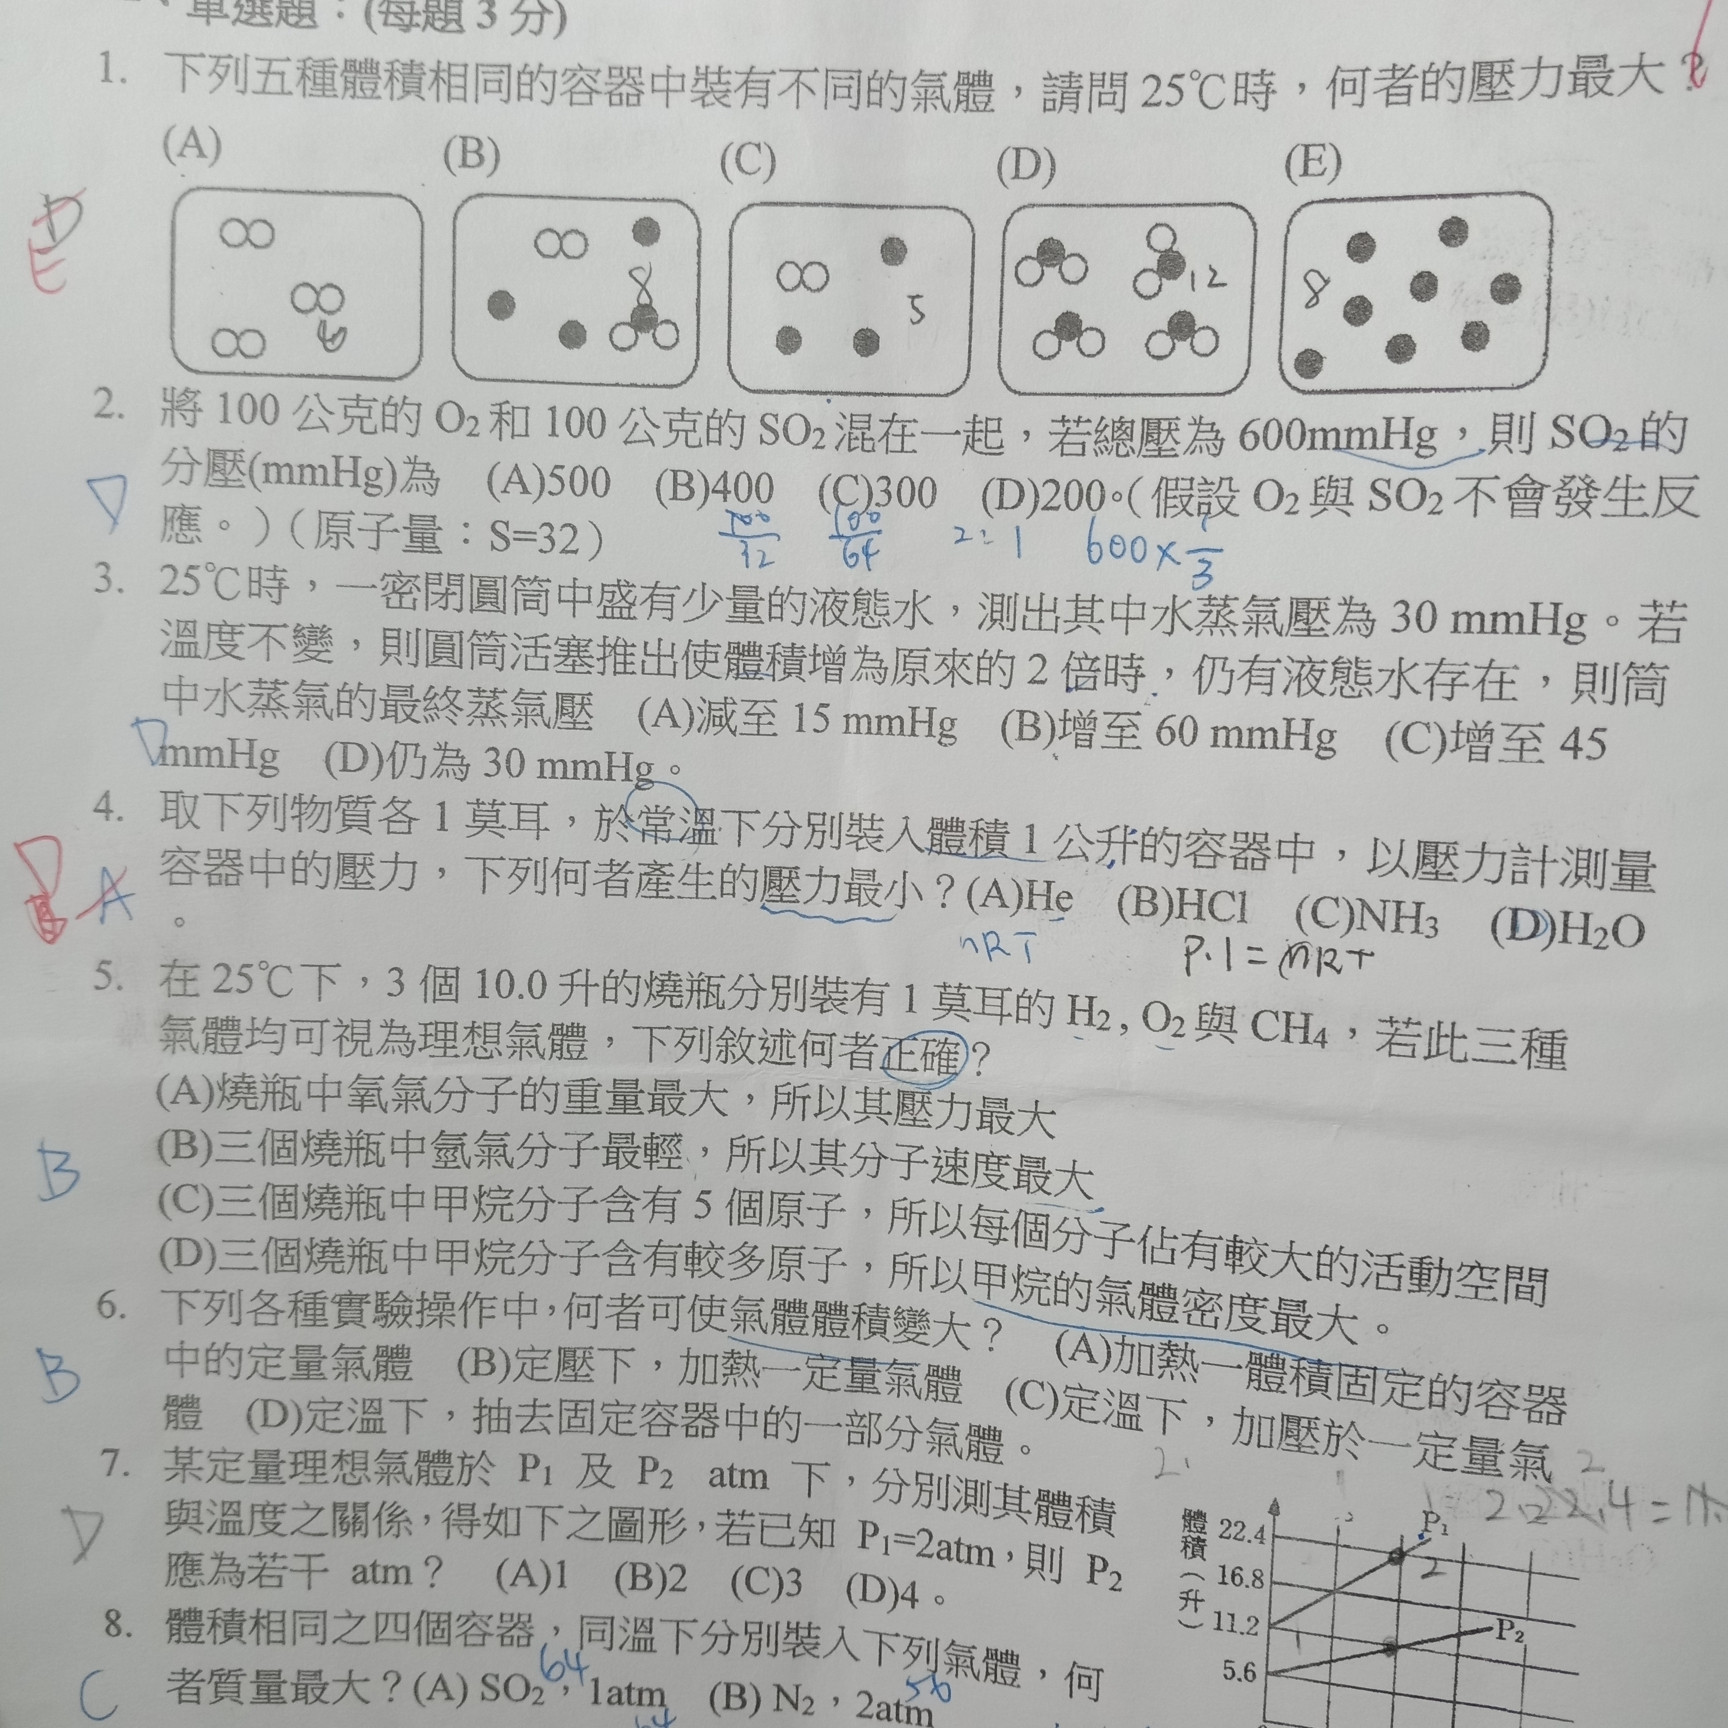 單選題：(每題 3 分)
1. 下列五種體積相同的容器中裝有不同的氣體，請問 25℃時，何者的壓力最大？
(A) (B) (C) (D) (E)
D
E
6 8 5 12 8
2. 將 100 公克的 O₂和 100 公克的 SO₂混在一起，若總壓為 600mmHg，則 SO₂的
分壓(mmHg)為 (A)500 (B)400 (C)300 (D)200。（假設 O₂與 SO₂不會發生反
D
應。）（原子量：S=32）
100/32 100/64 2:1 600×1/3
3. 25℃時，一密閉圓筒中盛有少量的液態水，測出其中水蒸氣壓為 30 mmHg。若
溫度不變，則圓筒活塞推出使體積增為原來的 2 倍時，仍有液態水存在，則筒
中水蒸氣的最終蒸氣壓 (A)減至 15 mmHg (B)增至 60 mmHg (C)增至 45
D
mmHg (D)仍為 30 mmHg。
4. 取下列物質各 1 莫耳，於常溫下分別裝入體積 1 公升的容器中，以壓力計測量
D
A
容器中的壓力，下列何者產生的壓力最小？(A)He (B)HCl (C)NH₃ (D)H₂O
。
nRT P.1=nRT
5. 在 25℃下，3 個 10.0 升的燒瓶分別裝有 1 莫耳的 H₂, O₂與 CH₄，若此三種
氣體均可視為理想氣體，下列敘述何者正確？
(A)燒瓶中氧氣分子的重量最大，所以其壓力最大
B
(B)三個燒瓶中氫氣分子最輕，所以其分子速度最大
(C)三個燒瓶中甲烷分子含有 5 個原子，所以每個分子佔有較大的活動空間
(D)三個燒瓶中甲烷分子含有較多原子，所以甲烷的氣體密度最大。
6. 下列各種實驗操作中，何者可使氣體體積變大？ (A)加熱一體積固定的容器
B
中的定量氣體 (B)定壓下，加熱一定量氣體 (C)定溫下，加壓於一定量氣
體 (D)定溫下，抽去固定容器中的一部分氣體。
7. 某定量理想氣體於 P₁ 及 P₂ atm 下，分別測其體積
D
與溫度之關係，得如下之圖形，若已知 P₁=2atm，則 P₂
應為若干 atm？ (A)1 (B)2 (C)3 (D)4。
體積（升）
22.4
16.8
11.2
5.6
P₁
2
P₂
8. 體積相同之四個容器，同溫下分別裝入下列氣體，何
64 56
C
者質量最大？(A) SO₂，1atm (B) N₂，2atm